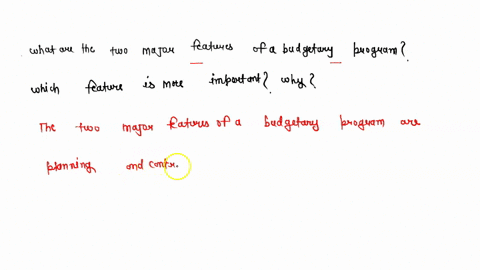 what are the two major features of a budgetary program?
which feature is more important? why?
The two major features of a budgetary program are
planning and contr.